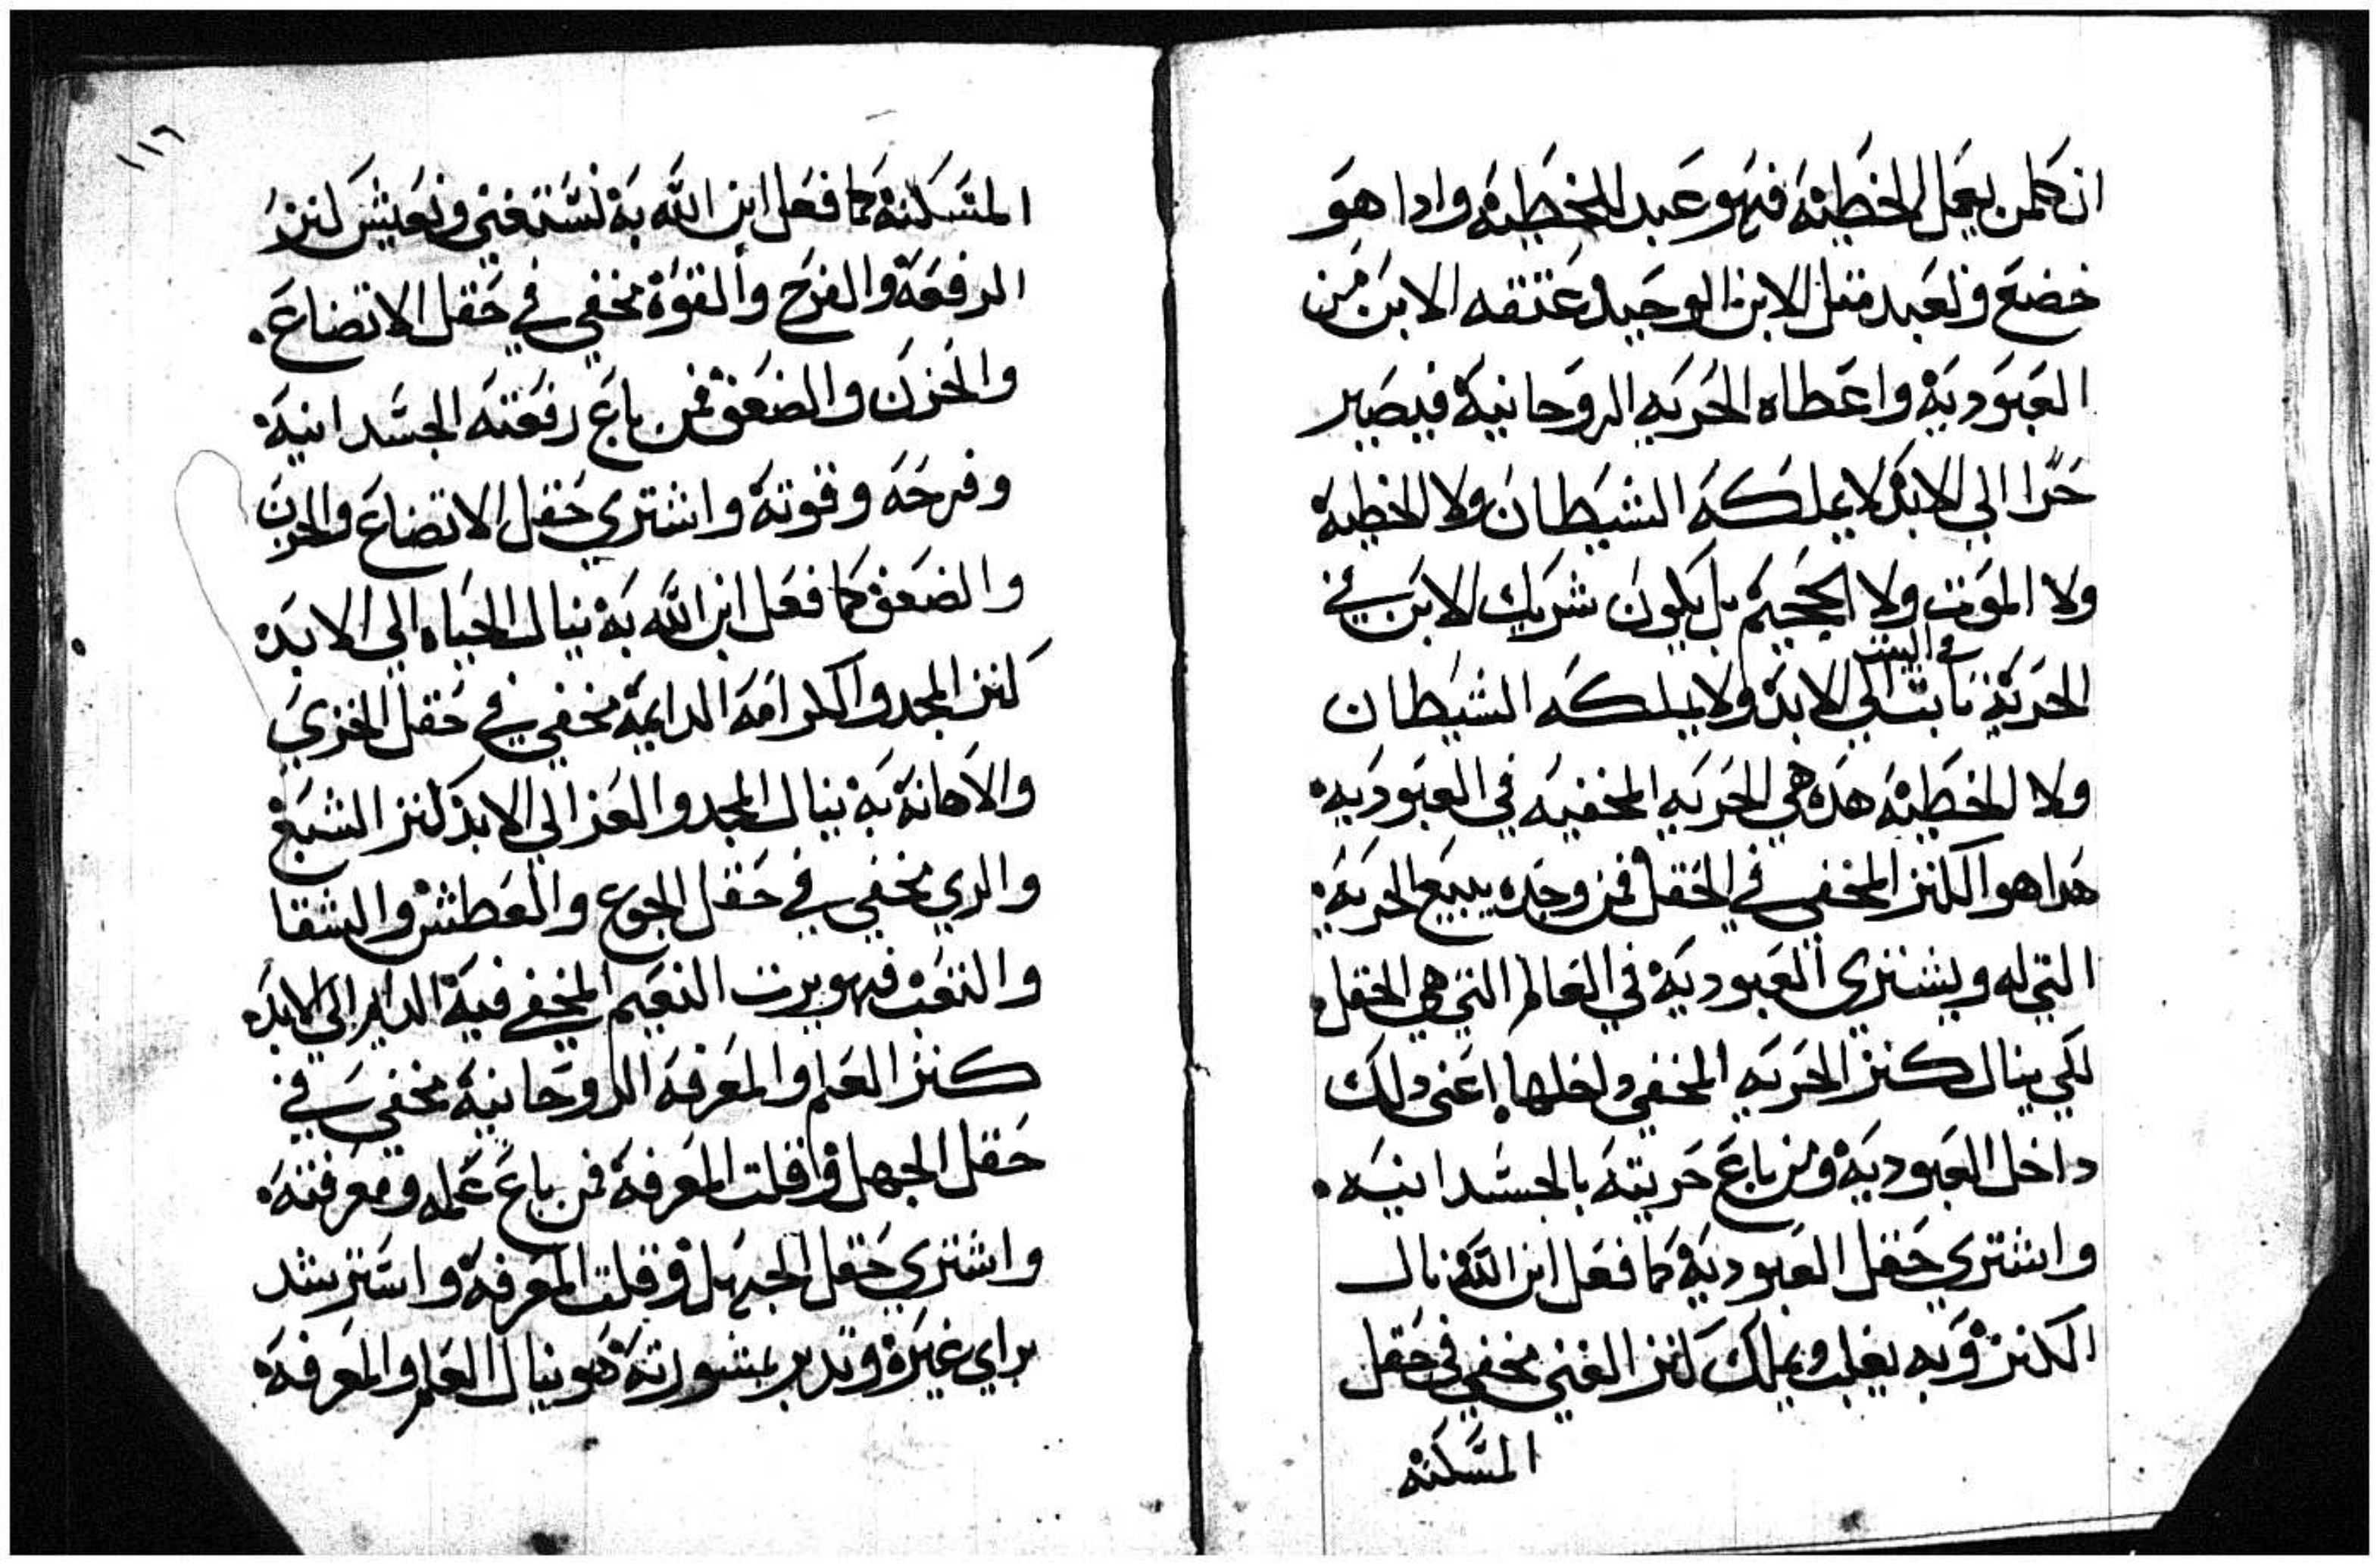 ان كلمن يعمل الخطية فهو عبد للخطية وادا هو
خضع وتعبد مثل الابن الوحيد وعتقه الابن من
العبودية واعطاه الحريه الروحانية فيصير
حرا الي الابد لا يملكه الشيطان ولا الخطية
ولا الموت ولا الجحيم بل يكون شريك الابن في
في البيت
الحرية تابت الي الابد ولا يملكه الشيطان
ولا الخطية هده هي الحريه المخفيه في العبوديه
هدا هو الكنز المخفي في الحقل فمن وجده يبيع الحرية
التي له ويشتري العبودية في العالم التي هي الحقل
لكي ينال كنز الحريه المخفي داخلها اعني دلك
داخل العبودية ومن باع حريته بالجسدانيه
واشتري حقل العبودية كما فعل ابن الله نال
الكنز وبه يغلب ويملك كنز الغني مخفي في حقل
المسكنة
١١٦
المتسكنة كما فعل ابن الله به نستغني ونعيش كنز
الرفعة والفرح والقوة مخفي في حقل الاتضاع
والحزن والضعف فمن باع رفعته الجسدانية
وفرحه وقوته واشتري حقل الاتضاع والحزن
والضعف كما فعل ابن الله به ينال الحياه الي الابد
كنز المجد والكرامه الدايمة مخفي في حقل الخزي
والاهانة به ينال المجد والعز الي الابد كنز الشبع
والري مخفي في حقل الجوع والعطش والشقا
والتعب فهو يرت النعيم المخفي فية الدايم الي الابد
كنز العلم والمعرفة الروحانية مخفي في
حقل الجهل وقلت المعرفة فمن باع علمه ومعرفته
واشتري حقل الجهل وقلت المعرفة واسترشد
براي غيرة وتدبر بمشورتة هو ينال العلم والمعرفة